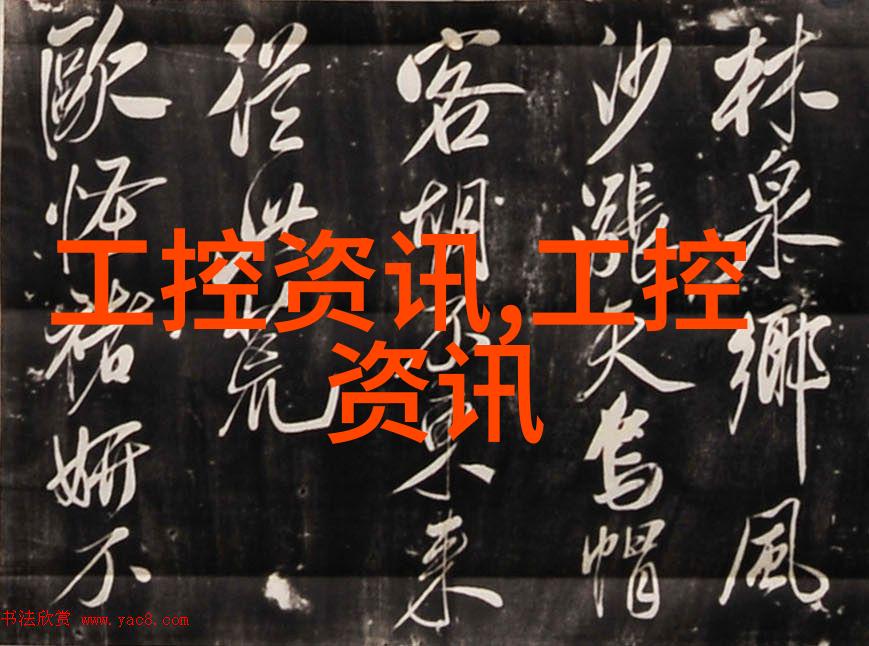 林泉鄉風
沙漲天烏帽
客胡不東来
從荒
歐怪褚妍不
工控资讯,工控
资讯
书法欣赏 www.yac8.com